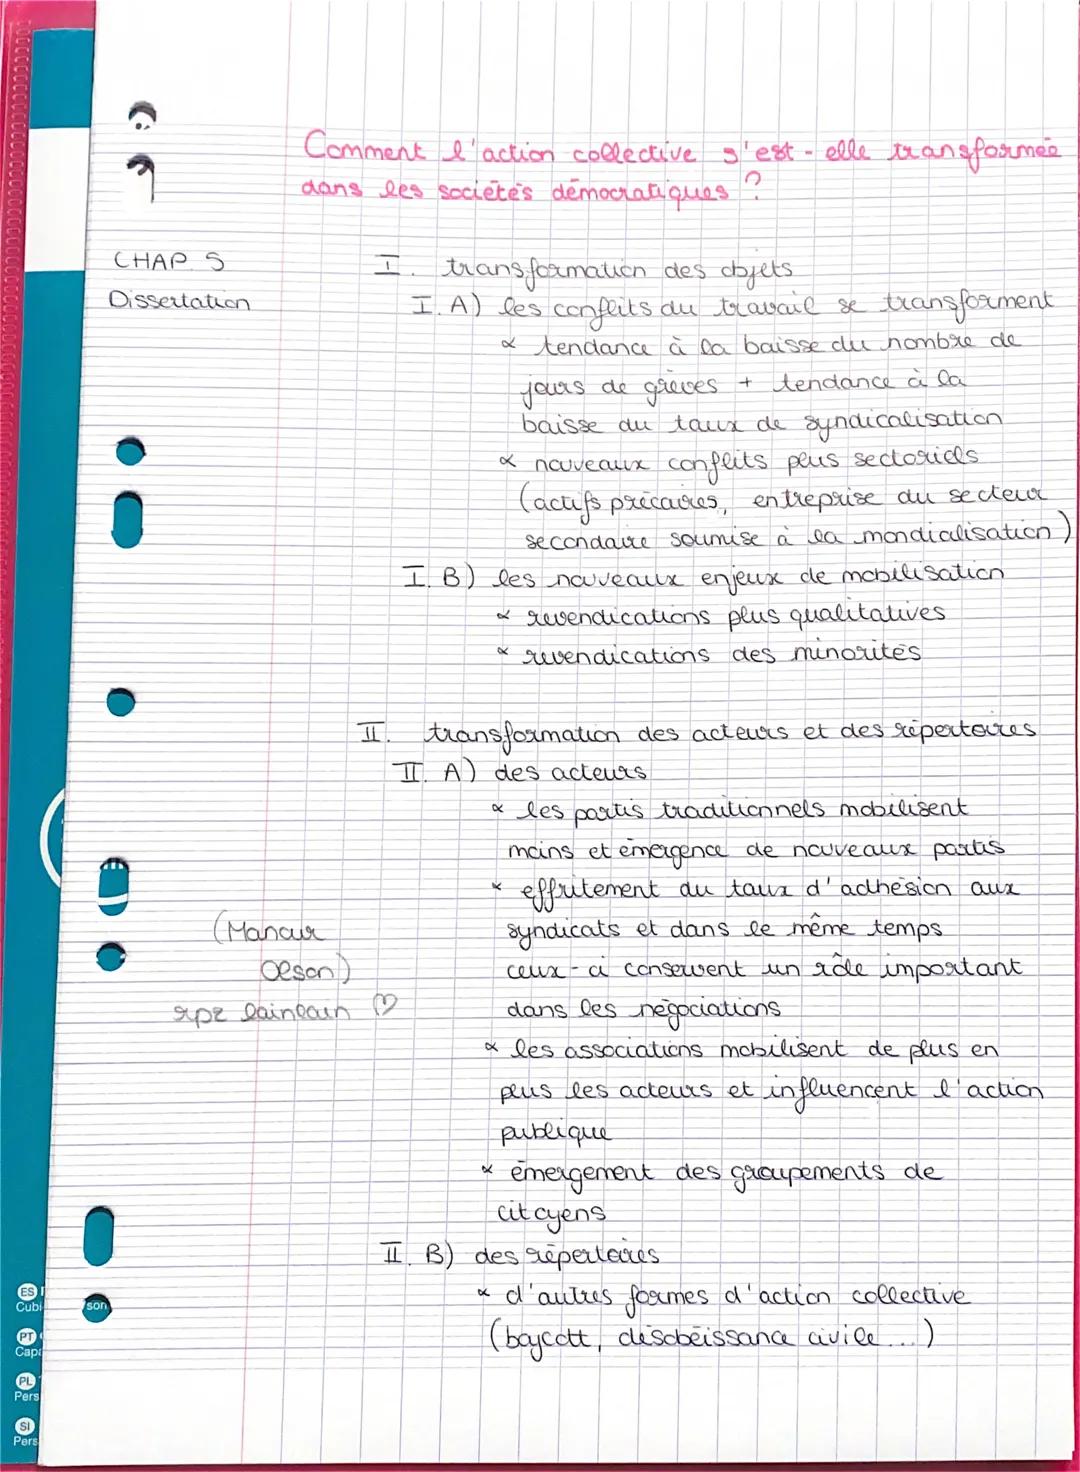 Comment l'action collective s'est-elle transformée
dans les sociétés démocratiques ?
CHAP. 5
Dissertation
I. transformation des objets
I. A) les conflits du travail se transforment
tendance à la baisse du nombre de
jours de grèves + tendance à la
baisse du taux de syndicalisation
nouveaux conflits plus sectoriels
(actifs précaires, entreprise du secteur
secondaire soumise à la mondialisation)
I. B) les nouveaux enjeux de mobilisation
revendications plus qualitatives
revendications des minorités
II. transformation des acteurs et des répertoires
II. A) des acteurs
les partis traditionnels mobilisent
moins et émergence de nouveaux partis
effritement du taux d'adhésion aux
syndicats et dans le même temps
ceux-ci conservent un rôle important
dans les négociations
(Mancur
Olson)
rpz lainlain ♡
les associations mobilisent de plus en
plus les acteurs et influencent l'action
publique
émergement des groupements de
citoyens
II. B) des répertoires
d'autres formes d'action collective
(boycott, désobéissance civile...)
ES
Cubi
son
PT
Capa
PL
Pers
SI
Pers